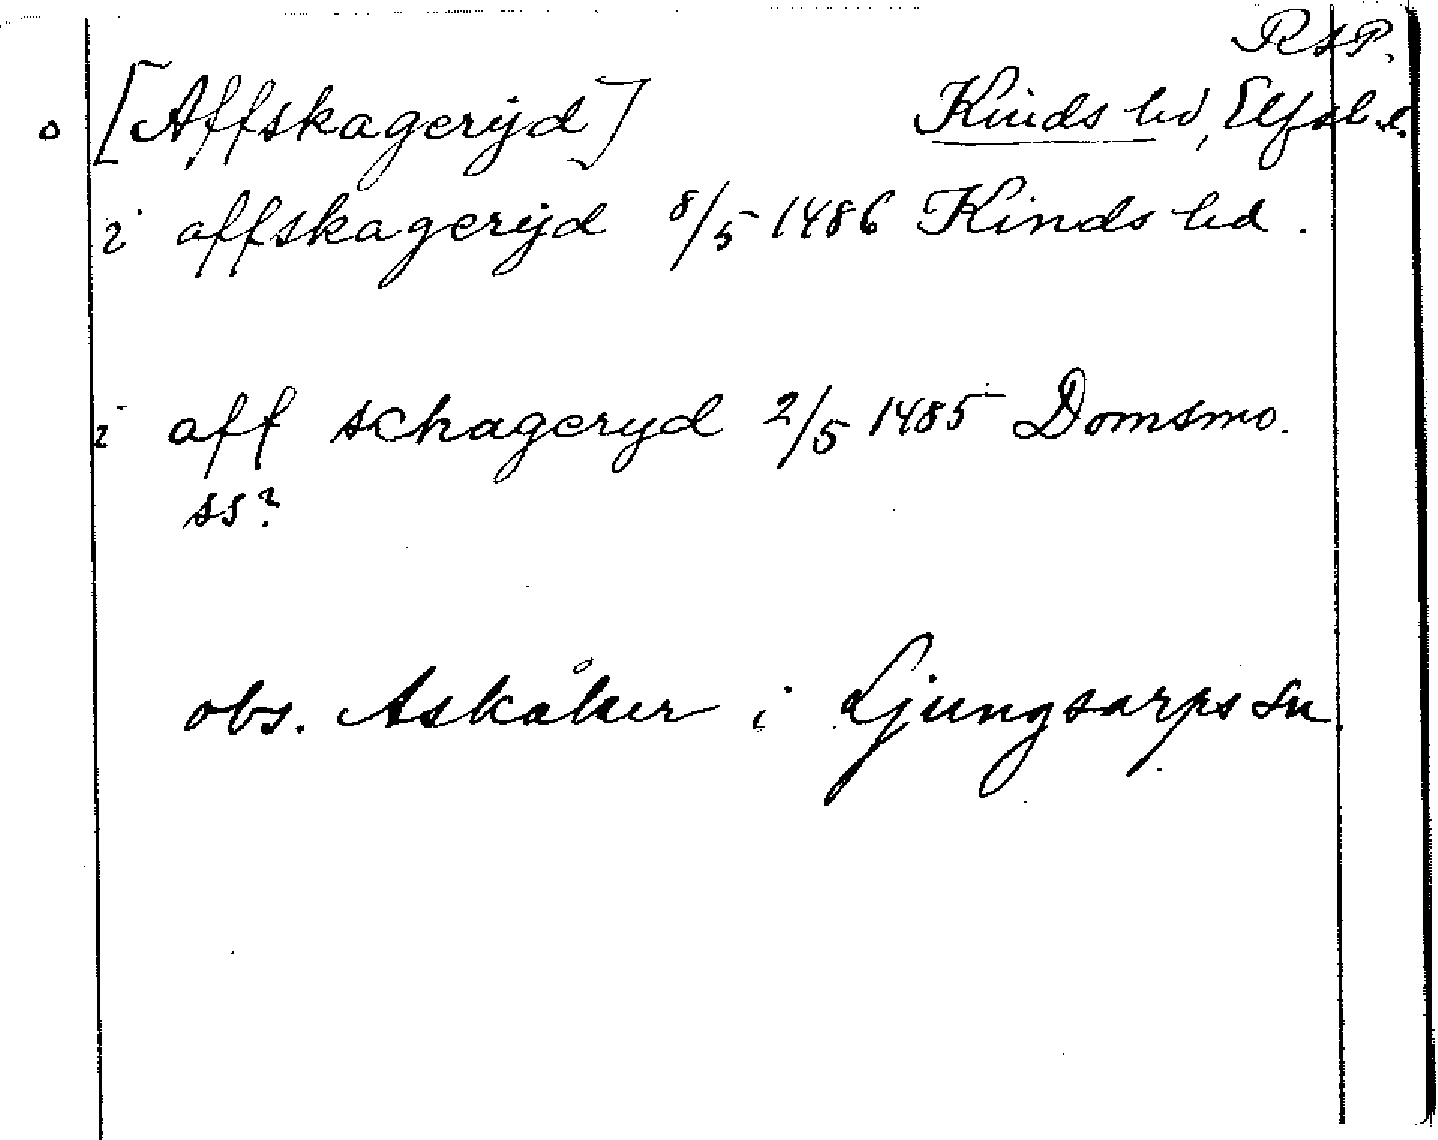 RAP.
o [Affskagerÿd] Kinds hd, Elfsb. l.
i affskagerÿd 8/5 1486 Kinds hd.
i aff schageryd 2/5 1485 Domsmo.
ss?
obs. Askåker i Ljungsarps sn